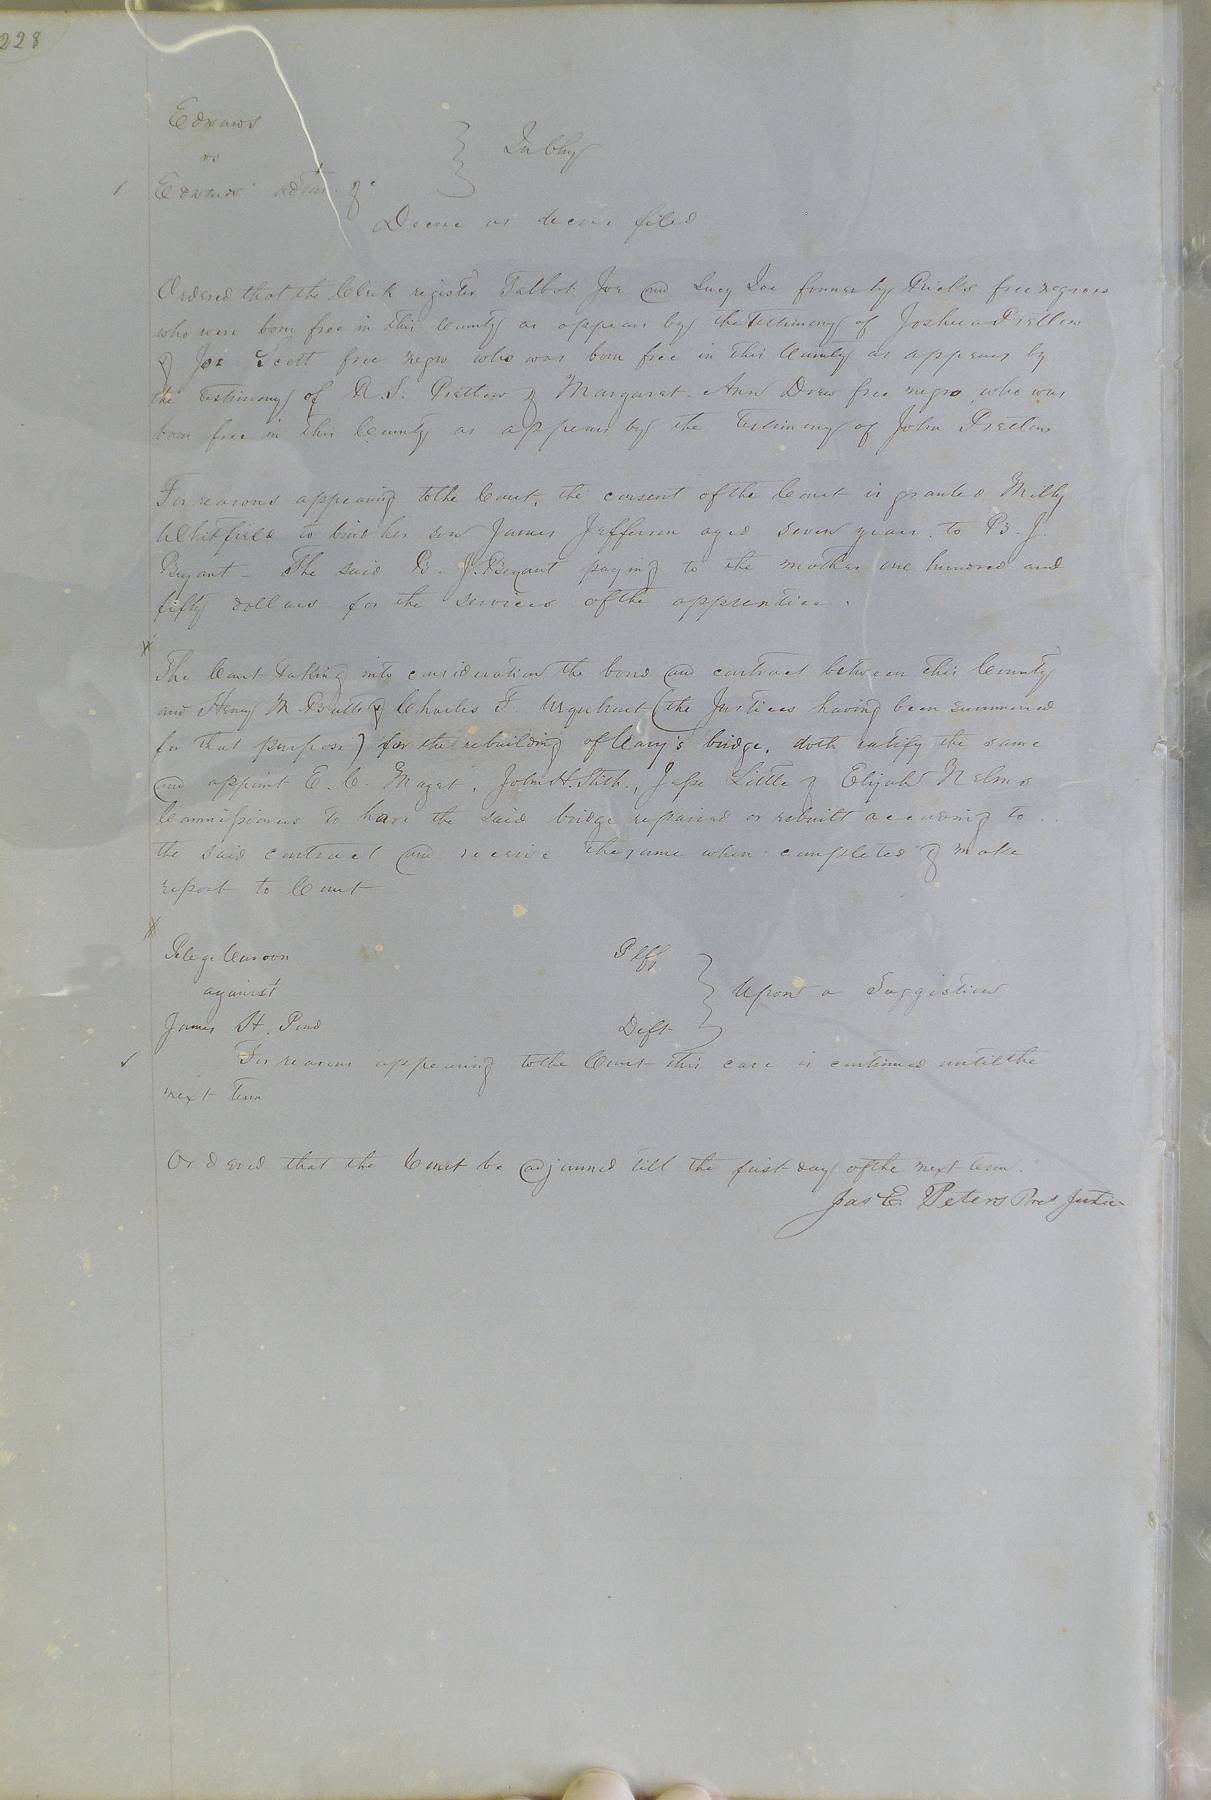 228
Edwards
vs
Edwards' admr. &c
In Chy
Decree as decree filed
Ordered that the Clerk register Talbot Joe and Lucy Joe formerly free negroes
who were born free in this County as appears by the testimony of Joshua Pretlow
& Joe Scott free negro who was born free in this County as appears by
the testimony of R. S. Pretlow & Margaret Ann Drew free negro who was
born free in this County as appears by the testimony of John Pretlow
For reasons appearing to the Court, the consent of the Court is granted Milly
Whitfield to bind her son James Jefferson aged seven years, to B. J.
Bryant – The said B. J. Bryant paying to the mother one hundred and
fifty dollars for the services of the apprentice.
The Court taking into consideration the bond and contract between this County
and Henry M. Butts & Charles F. Urquhart (the Justices having been summoned
for that purpose) for the rebuilding of Cary's bridge, doth ratify the same
and appoint E. C. Maget, John H. Stith, Jesse Little & Elijah Nelms
Commissioners to have the said bridge repaired or rebuilt according to
the said contract and receive the same when completed & make
report to Court
Plff
against
James H. Pond Deft
Upon a Suggestion
For reasons appearing to the Court this case is continued until the
next term
Ordered that the Court be adjourned till the first day of the next term.
Jas E. Peters Pres Justice